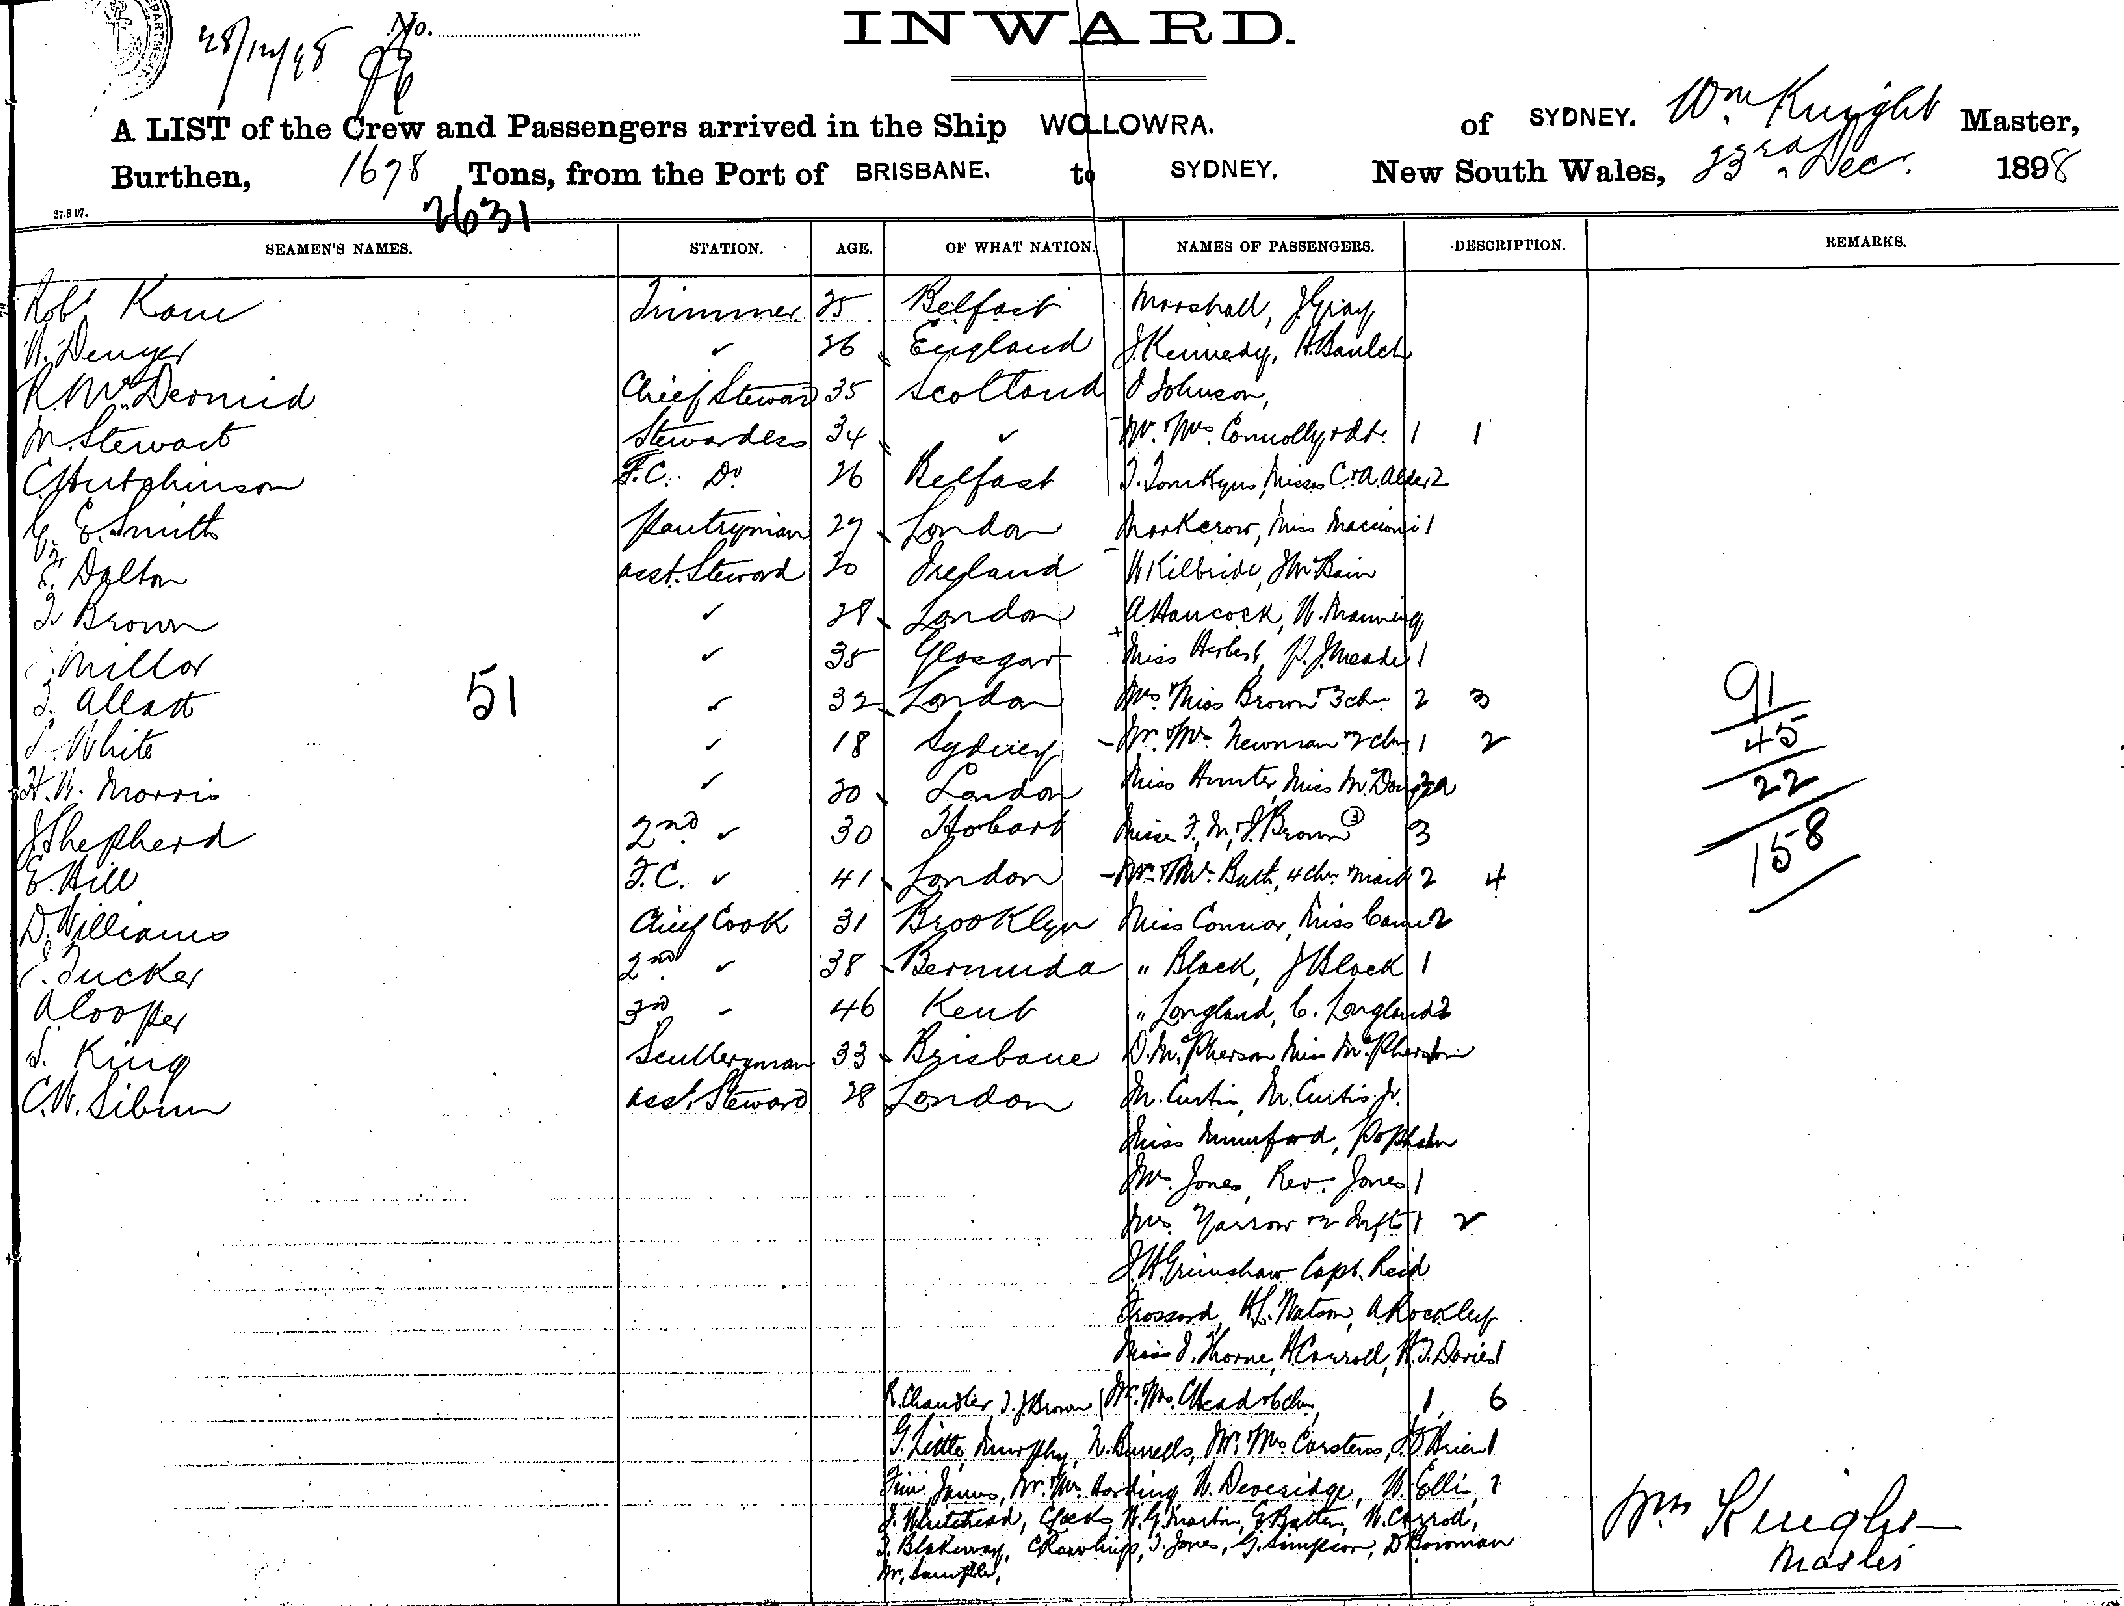 28/12/98 No.
INWARD.
A LIST of the Crew and Passengers arrived in the Ship WOLLOWRA. of SYDNEY. Wm Knight Master,
Burthen, 1698 Tons, from the Port of BRISBANE. to SYDNEY. New South Wales, 23rd Dec. 1898
2631
27.8 97.
SEAMEN'S NAMES. STATION. AGE. OF WHAT NATION. NAMES OF PASSENGERS. DESCRIPTION. REMARKS.
Robt Kane Trimmer 25 Belfast Marshall, J Gray
W. Denyer ✓ 26 England J. Kennedy, H. Baulch
R. McDermid Chief Steward 35 Scotland J Johnson,
M. Stewart Stewardess 34 ✓ Mr. Mrs. Connolly + dt. 1 1
C. Hutchinson F.C. Do 26 Belfast T. Tomkyns, Misses C. + A. Alder 2
G. E. Smith Pantryman 29 London Markcrow, Miss 1
F. Dalton Asst. Steward 20 Ireland W Kilbride, J McBain
T. Brown ✓ 28 London A Hancock, W. Manning
Millar ✓ 35 Glasgow Miss Herbert, P. J. Meade 1
T. Allatt ✓ 32 London Mrs. Miss Brown + 3 chn 2 3
51
S. White ✓ 18 Sydney Mr. Mrs. Newman + 2 chn 1 2
H. W. Morris ✓ 20 London Miss Hunter, Miss 2
J Shepherd 2nd ✓ 30 Hobart Misses F., M., J. Brown (3) 3
E. Hill F.C. ✓ 41 London Mr. + Mrs. Butt, 4 chn. maid 2 4
D. Williams Chief Cook 31 Brooklyn Miss Connor, Miss 2
Tucker 2nd ✓ 38 Bermuda " Black, J Black 1
A Cooper 3rd ✓ 46 Kent " Longland, C. Longland 2
S. King Sculleryman 33 Brisbane D. McPherson, Miss McPherson 1
C. W. Sibun Asst. Steward 28 London M. Curtis, M. Curtis Jr.
Miss Mumford, Popham
Mrs. Jones, Rev. Jones 1
Mrs. Yarrow + 2 Infts 1 2
J. H. Grimshaw Capt. Reid
Frossard, H. L. Watson, A Rockley
Miss J. Thorne, H Carroll, W. J. Davies 1
R. Chandler, J. J. Brown Mr. Mrs. C Head + 6 chn, 1 6
G. Little, Murphy, N. Burrells, Mr. Mrs. Carstens, J O'Brien 1
James, Mr. Mrs. Harding W. Deveridge, W. Ellis, 1
J. Whitehead, W. G. Martin, G. Batten, W. Carroll,
T. Blakeway, C Rawlings, T. Jones, G. Simpson, D Bowman
Mr. Sample,
91
45
22
158
Wm Knight
Master